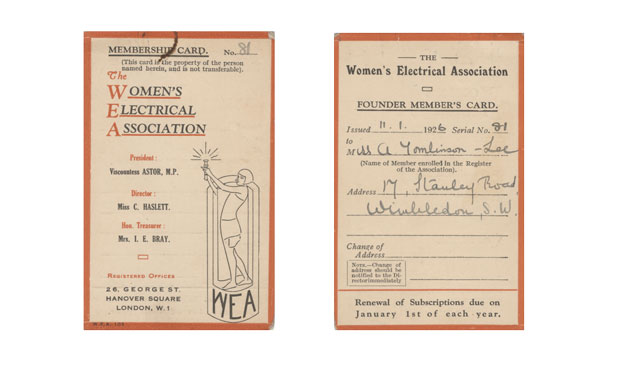 MEMBERSHIP CARD. No. 81
(This card is the property of the person
named herein, and is not transferable).
The
WOMEN'S
ELECTRICAL
ASSOCIATION
President :
Viscountess ASTOR, M.P.
Director :
Miss C. HASLETT.
Hon. Treasurer :
Mrs. I. E. BRAY.
REGISTERED OFFICES
26, GEORGE ST.
HANOVER SQUARE
LONDON, W.1
WEA
THE
Women's Electrical Association
FOUNDER MEMBER'S CARD.
Issued 11.1. 1926 Serial No. 81
to
A Tomlinson-Lee
(Name of Member enrolled in the Register
of the Association).
Address 17, Stanley Road
Wimbledon, S.W.
Change of
Address
NOTE.—Change of
address should be
notified to the Di-
rector immediately
Renewal of Subscriptions due on
January 1st of each year.